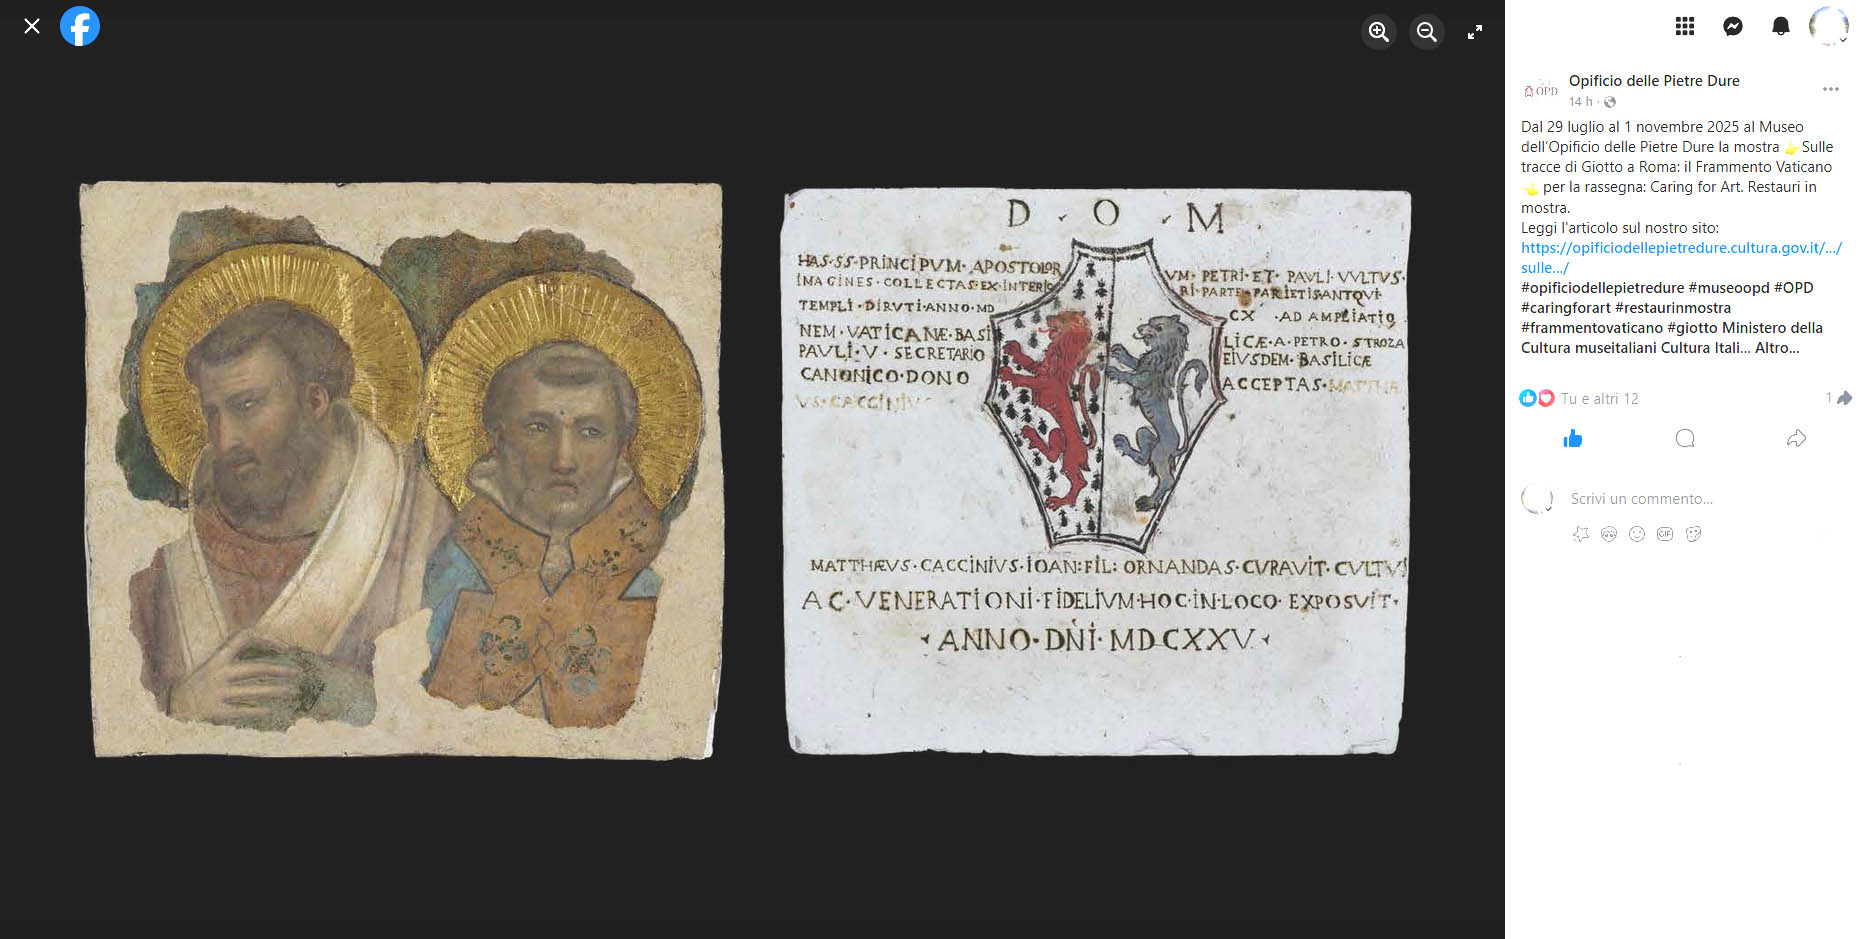 D · O · M
HAS·SS·PRINCIPVM·APOSTOLOR
VM· PETRI·ET· PAVLI·VVLTVS·
IMAGINES·COLLECTAS·EX·INTERIO
RI·PARTE·PARIETIS·ANTQVI·
TEMPLI·DIRVTI·ANNO·MD
CX ·AD AMPLIATIO
NEM·VATICANÆ·BASI
LICÆ·A·PETRO·STROZA
PAVLI·V· SECRETARIO
EIVSDEM·BASILICÆ
CANONICO·DONO
ACCEPTAS·MATTHÆ
VS·CACCINIVS
MATTHÆVS·CACCINIVS·IOAN:FIL: ORNANDAS·CVRAVIT·CVLTVI
AC·VENERATIONI·FIDELIVM·HOC·IN·LOCO·EXPOSVIT·
·ANNO·DNI·MDCXXV·
OPD
Opificio delle Pietre Dure
14 h ·
Dal 29 luglio al 1 novembre 2025 al Museo
dell'Opificio delle Pietre Dure la mostra 👉Sulle
tracce di Giotto a Roma: il Frammento Vaticano
👈 per la rassegna: Caring for Art. Restauri in
mostra.
Leggi l'articolo sul nostro sito:
https://opificiodellepietredure.cultura.gov.it/.../
sulle.../
#opificiodellepietredure #museoopd #OPD
#caringforart #restaurinmostra
#frammentovaticano #giotto Ministero della
Cultura museitaliani Cultura Itali... Altro...
Tu e altri 12
1
Scrivi un commento...
GIF